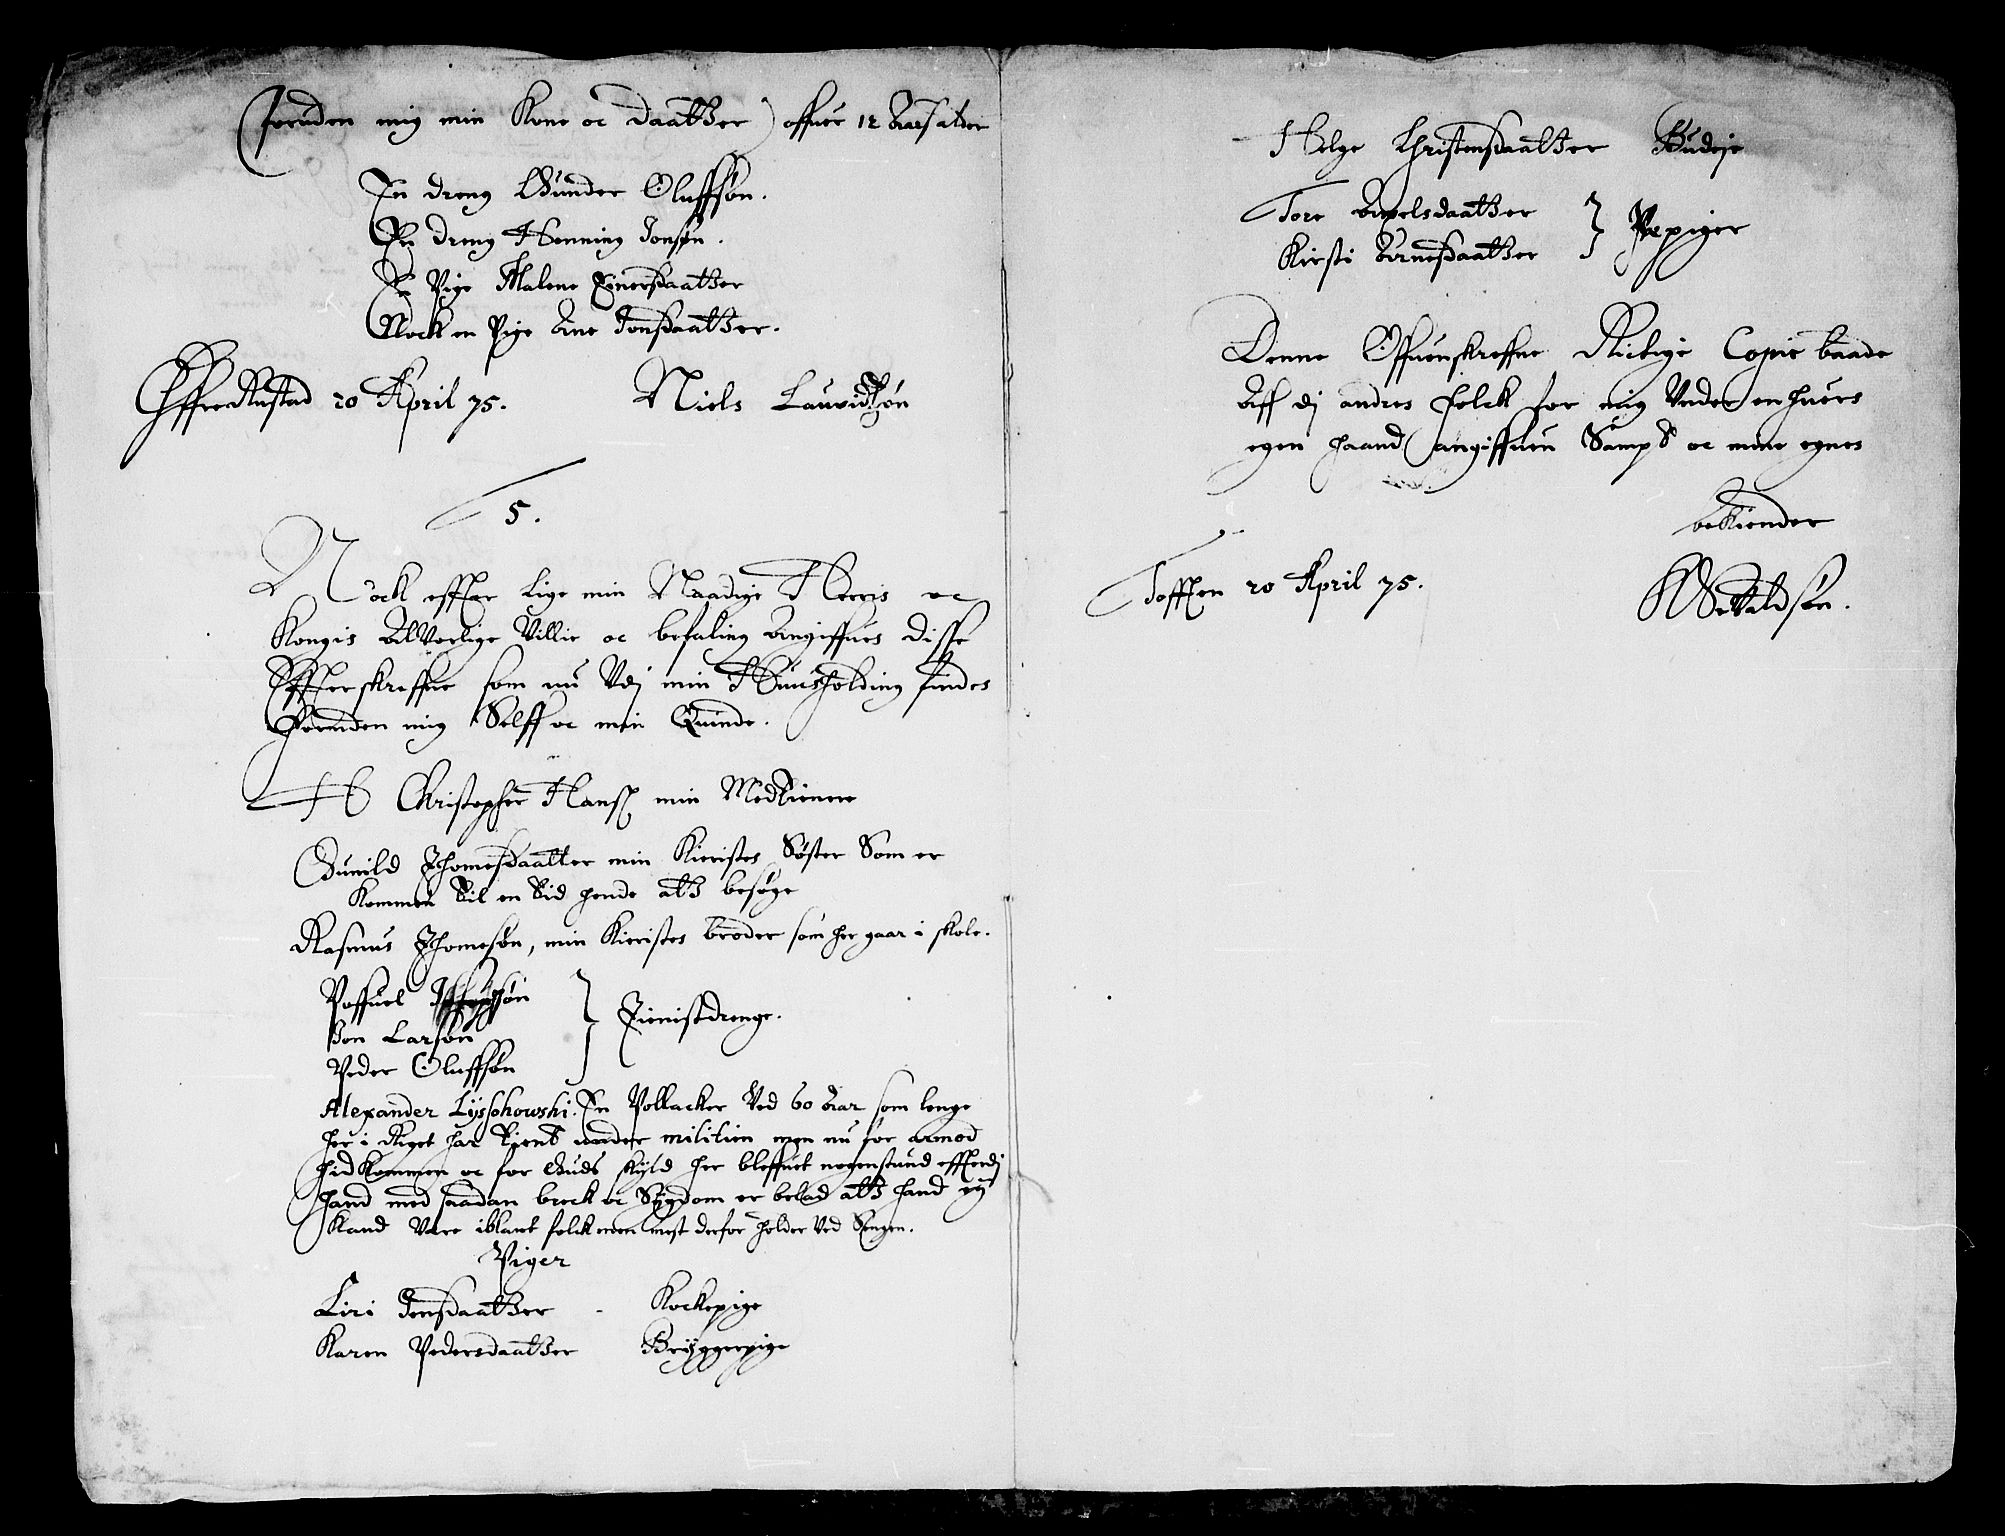 (foruden mig min Kone oc daatter) offuer 12 Aars alder
En dreng Gunder Oluffsøn.
En dreng Henning Jonsøn.
En Pige Malene Einersdaatter
Nock en Pige Ane Jonsdaatter.
Offre Rustad 20 April 75. Niels Lauridsøn
5.
Nock effter lige min Naadige Herris oc
Kongis Alvorlige Villie oc befaling Angiffues disse
Effterskreffne som nu Udj min Huusholding findes
Foruden mig Selff oc min Quinde.
H Christopher Hansß min Medtienere
Gunild Thomesdaatter min Kieristes Søster Som er
Kommen til en tid hende att besøge
Rasmus Thomesøn, min Kieristes broder som her gaar i skole.
Poffuel søn
Jon Larsøn } Tienistdrenge.
Peder Oluffsøn
Alexander Lyssohowski. En Pollacker Ved 60 Aar som lenge
her i Riget har tient under militien men nu for armod
hid Kommen oc for Guds skyld her bleffuet nogen stund effterdj
hand med saadan breck oc Sygdom er belad att hand ey
Kand være iblant folck men mest derfor holder ved Sengen.
Piger
Liri Jensdaatter - Kockepige
Karen Pedersdaatter Bryggerpige
Helge Christensdaatter Budeje
Tore Axelsdaatter } Pepiger
Kirsti Arnesdaatter
Denne Offuenskreffne Rictige Copie baade
Aff dj andres folck for mig Under en huers
egen haand angiffuen Sampt oc mine egnes
bekiender
Tofften 20 April 75. Sevaldsøn.